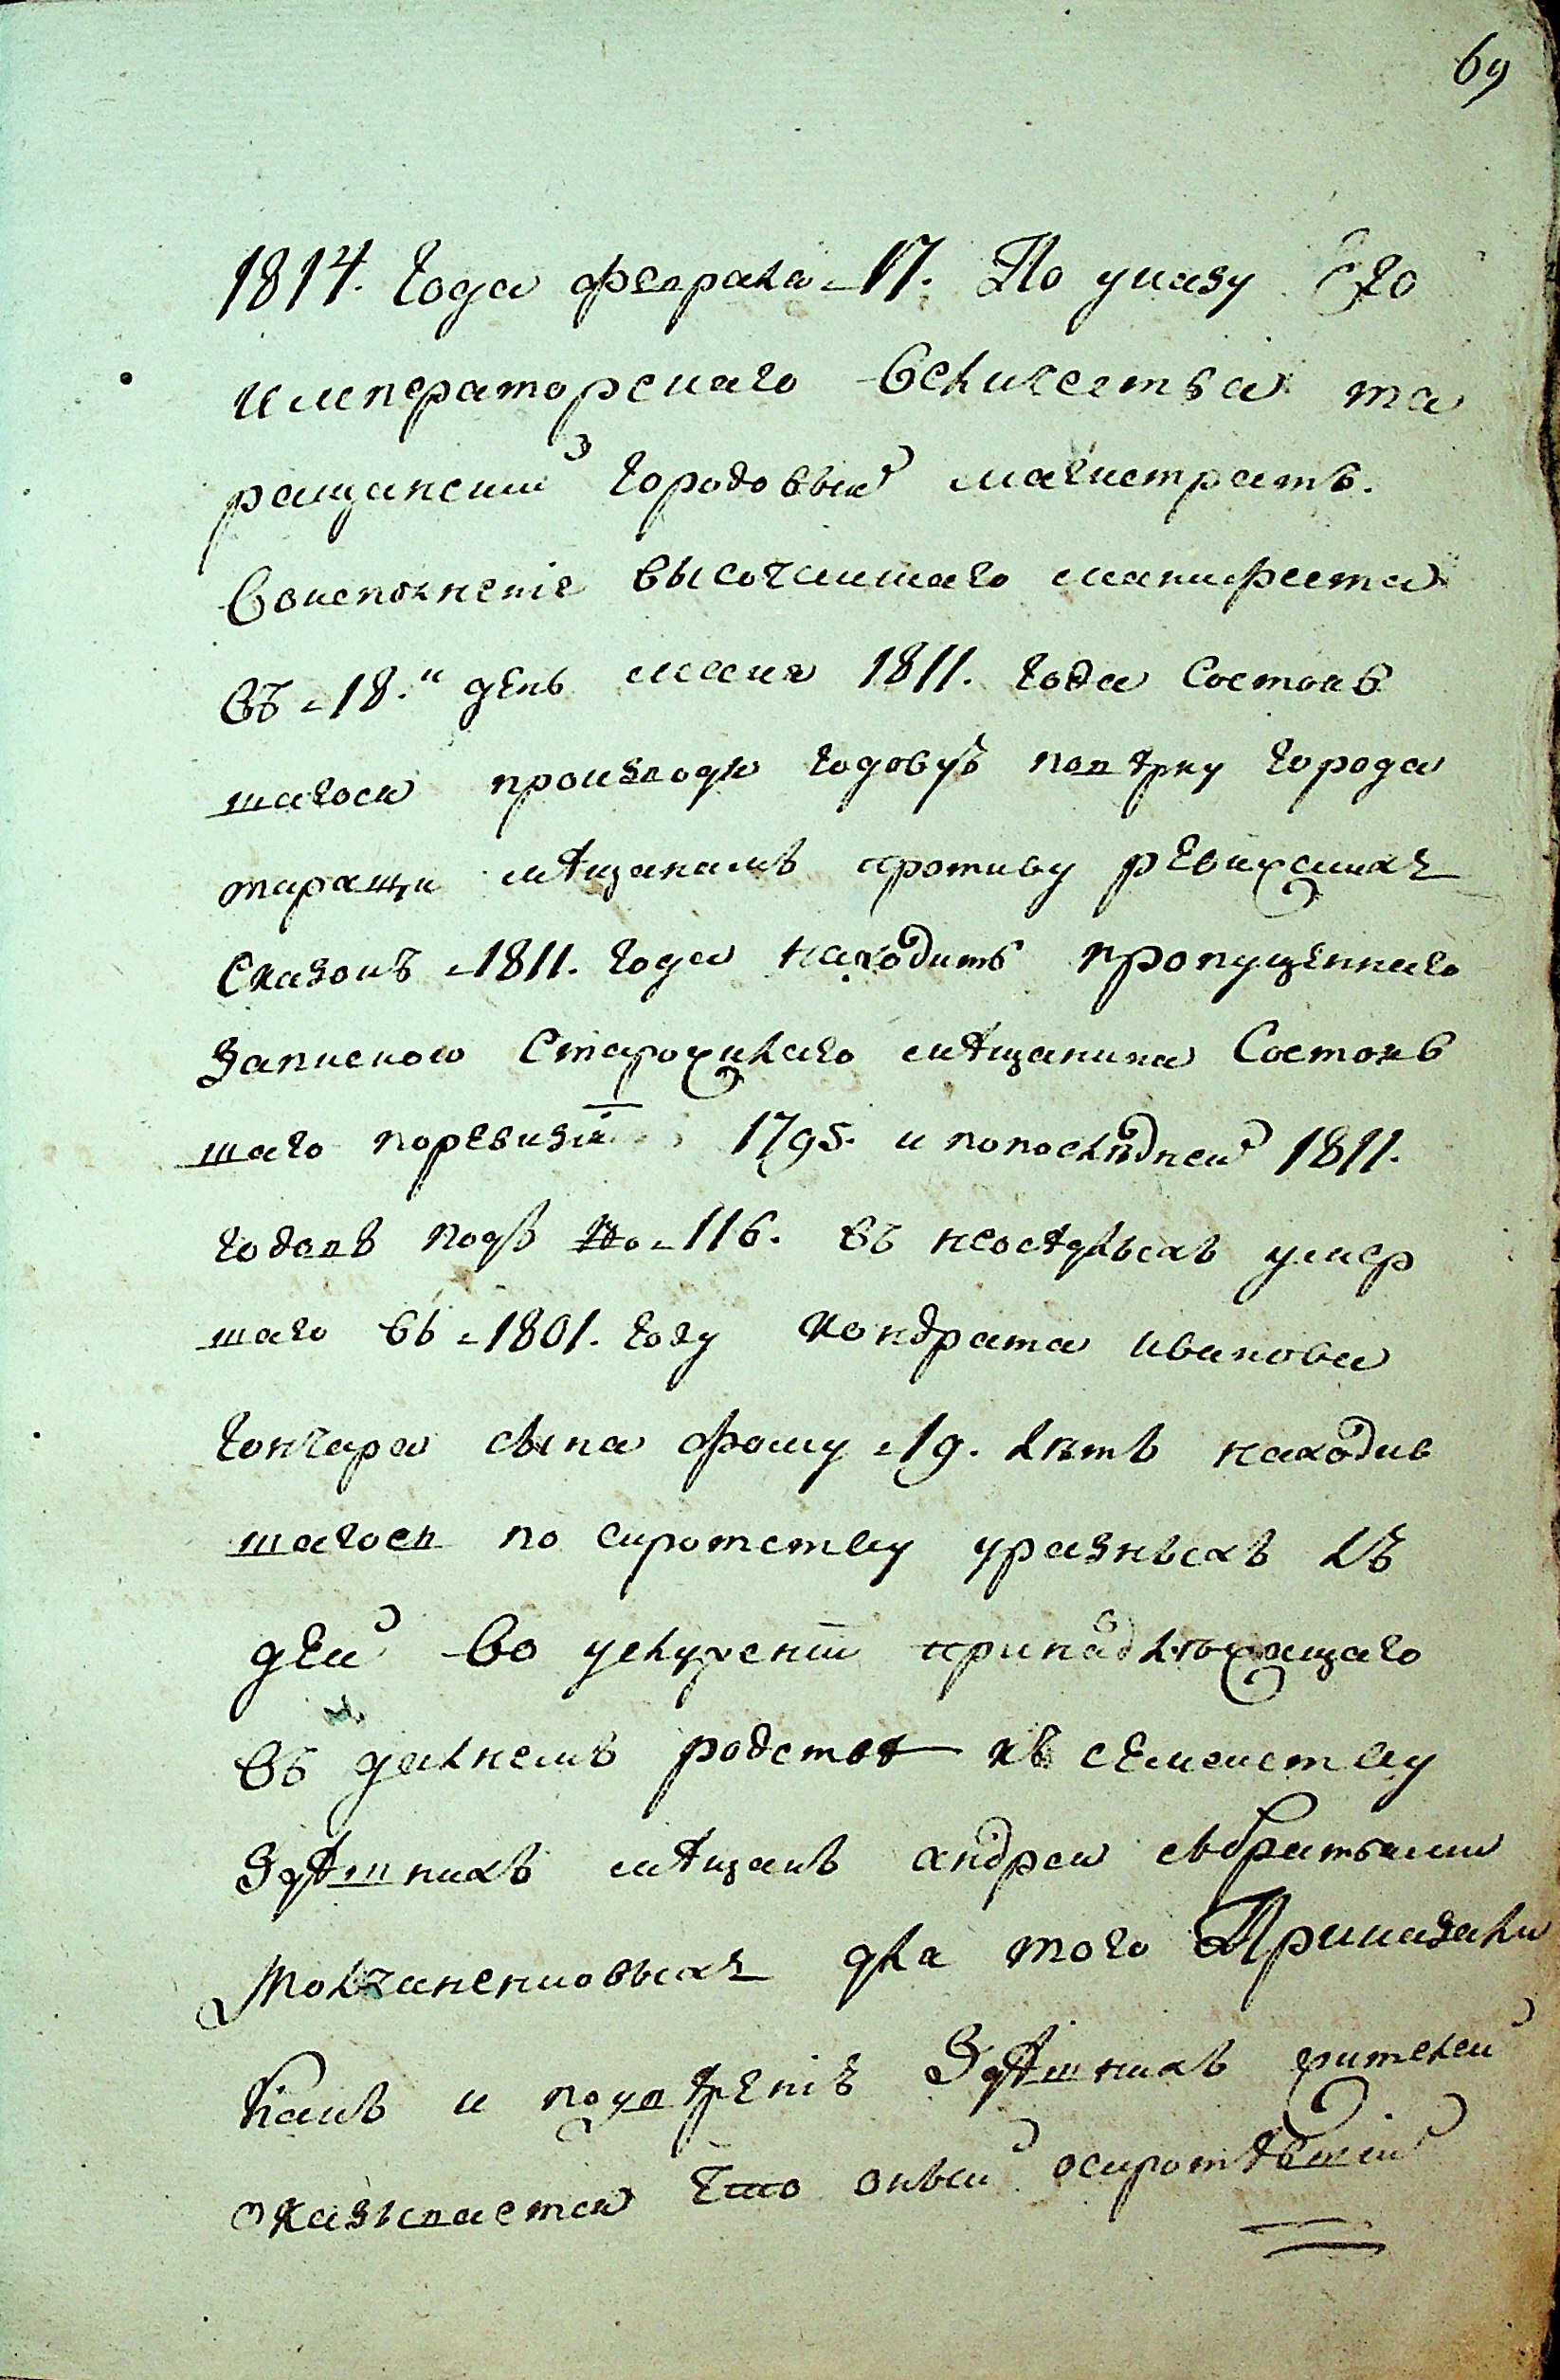 69
1814. Года февраля 17. По указу Его
императорскаго величества та
ращанский городовый магистратъ.
Воисполнение высочаишаго манифеста
въ 18.й день маия 1811. года состояв
шагося производя годовую поверку города
таращи мѣщанамъ противу ревижскихъ
сказокъ 1811. года находитъ пропущеннаго
запискою старожилаго мѣщанина состояв
шаго поревизіи 1795. и попослѣдней 1811.
годовъ подъ No 116. въ неосѣдлыхъ умер
шаго въ 1801. году кондрата иванова
гончара сына фому 19. лѣтъ находив
шагося по сиротству уразныхъ лю
дей во услуженіи принадлѣжащаго
въ далнемъ родствѣ къ семеиству
здѣшнихъ мѣщанъ андрея събратьями
Толчаненковыхъ для того Приказали
Какъ и поуверенію здѣшнихъ жителей
оказывается что оный осиротѣвший